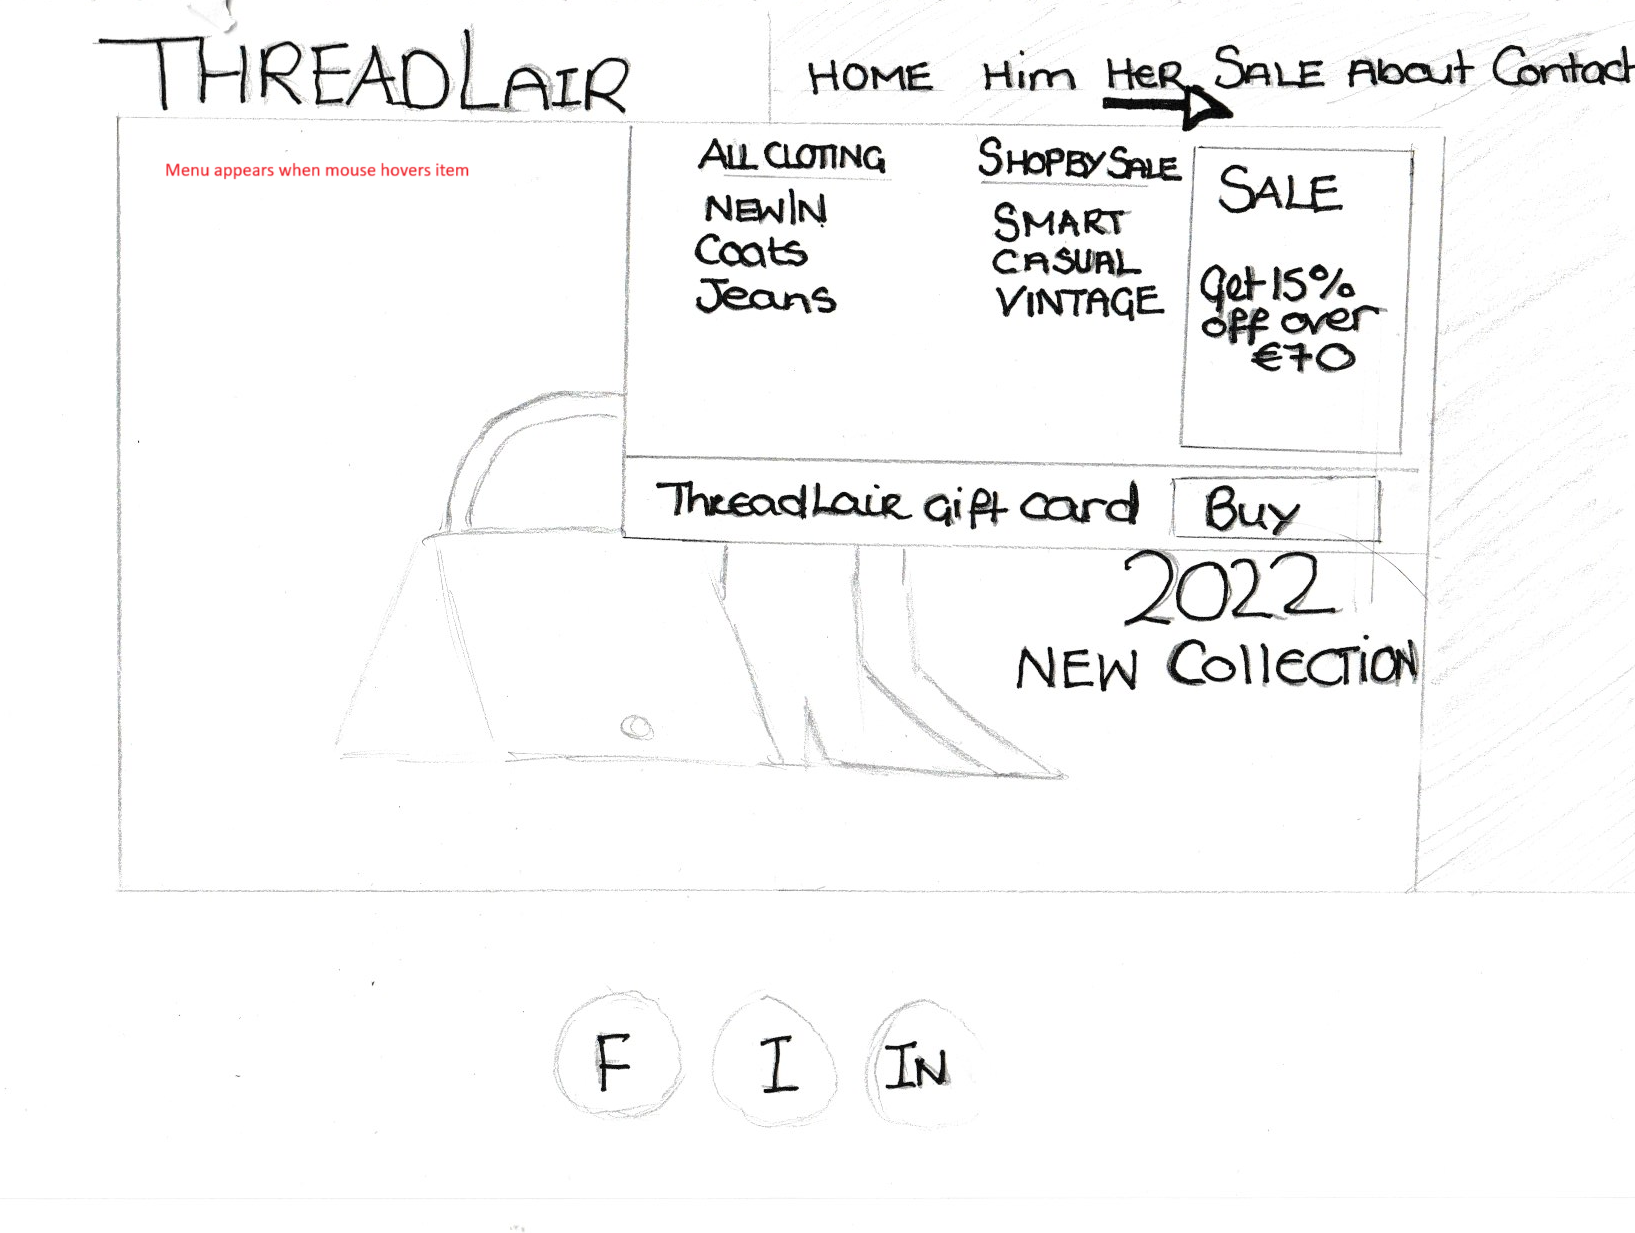 THREADLAIR
HOME Him HeR SALE About Contact
Menu appears when mouse hovers item
ALL CLOTING
NEW IN
Coats
Jeans
SHOP BY SALE
SMART
CASUAL
VINTAGE
SALE
Get 15%
off over
€70
ThreadLair gift card
Buy
2022
NEW Collection
F
I
IN